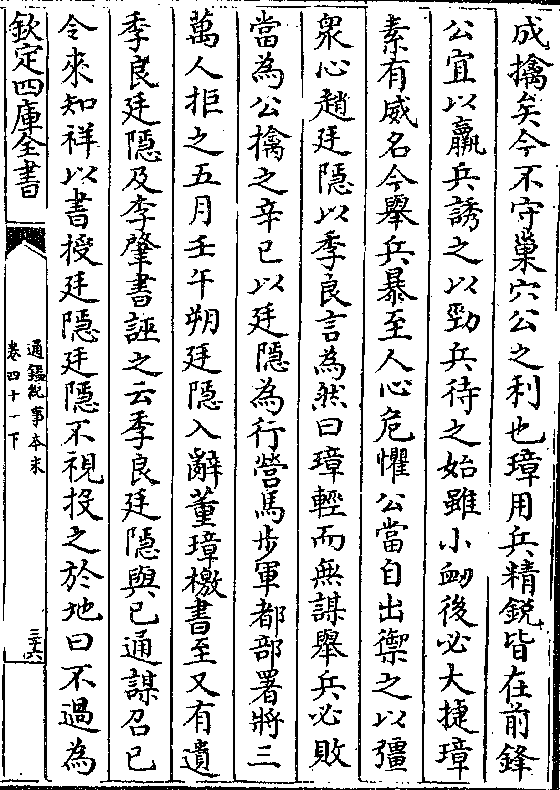 成擒矣今不守巢穴公之利也璋用兵精銳皆在前鋒
公宜以羸兵誘之以勁兵待之始雖小衂後必大捷璋
素有威名今舉兵暴至人心危懼公當自出禦之以彊
衆心趙廷隱以季良言為然曰璋輕而無謀舉兵必敗
當為公擒之辛巳以廷隱為行營馬步軍都部署將三
萬人拒之五月壬午朔廷隱入辭董璋檄書至又有遺
季良廷隱及李肇書誣之云季良廷隱與已通謀召已
令來知祥以書授廷隱廷隱不視投之於地曰不過為
欽定四庫全書
通鑑紀事本末
卷四十一下
三六